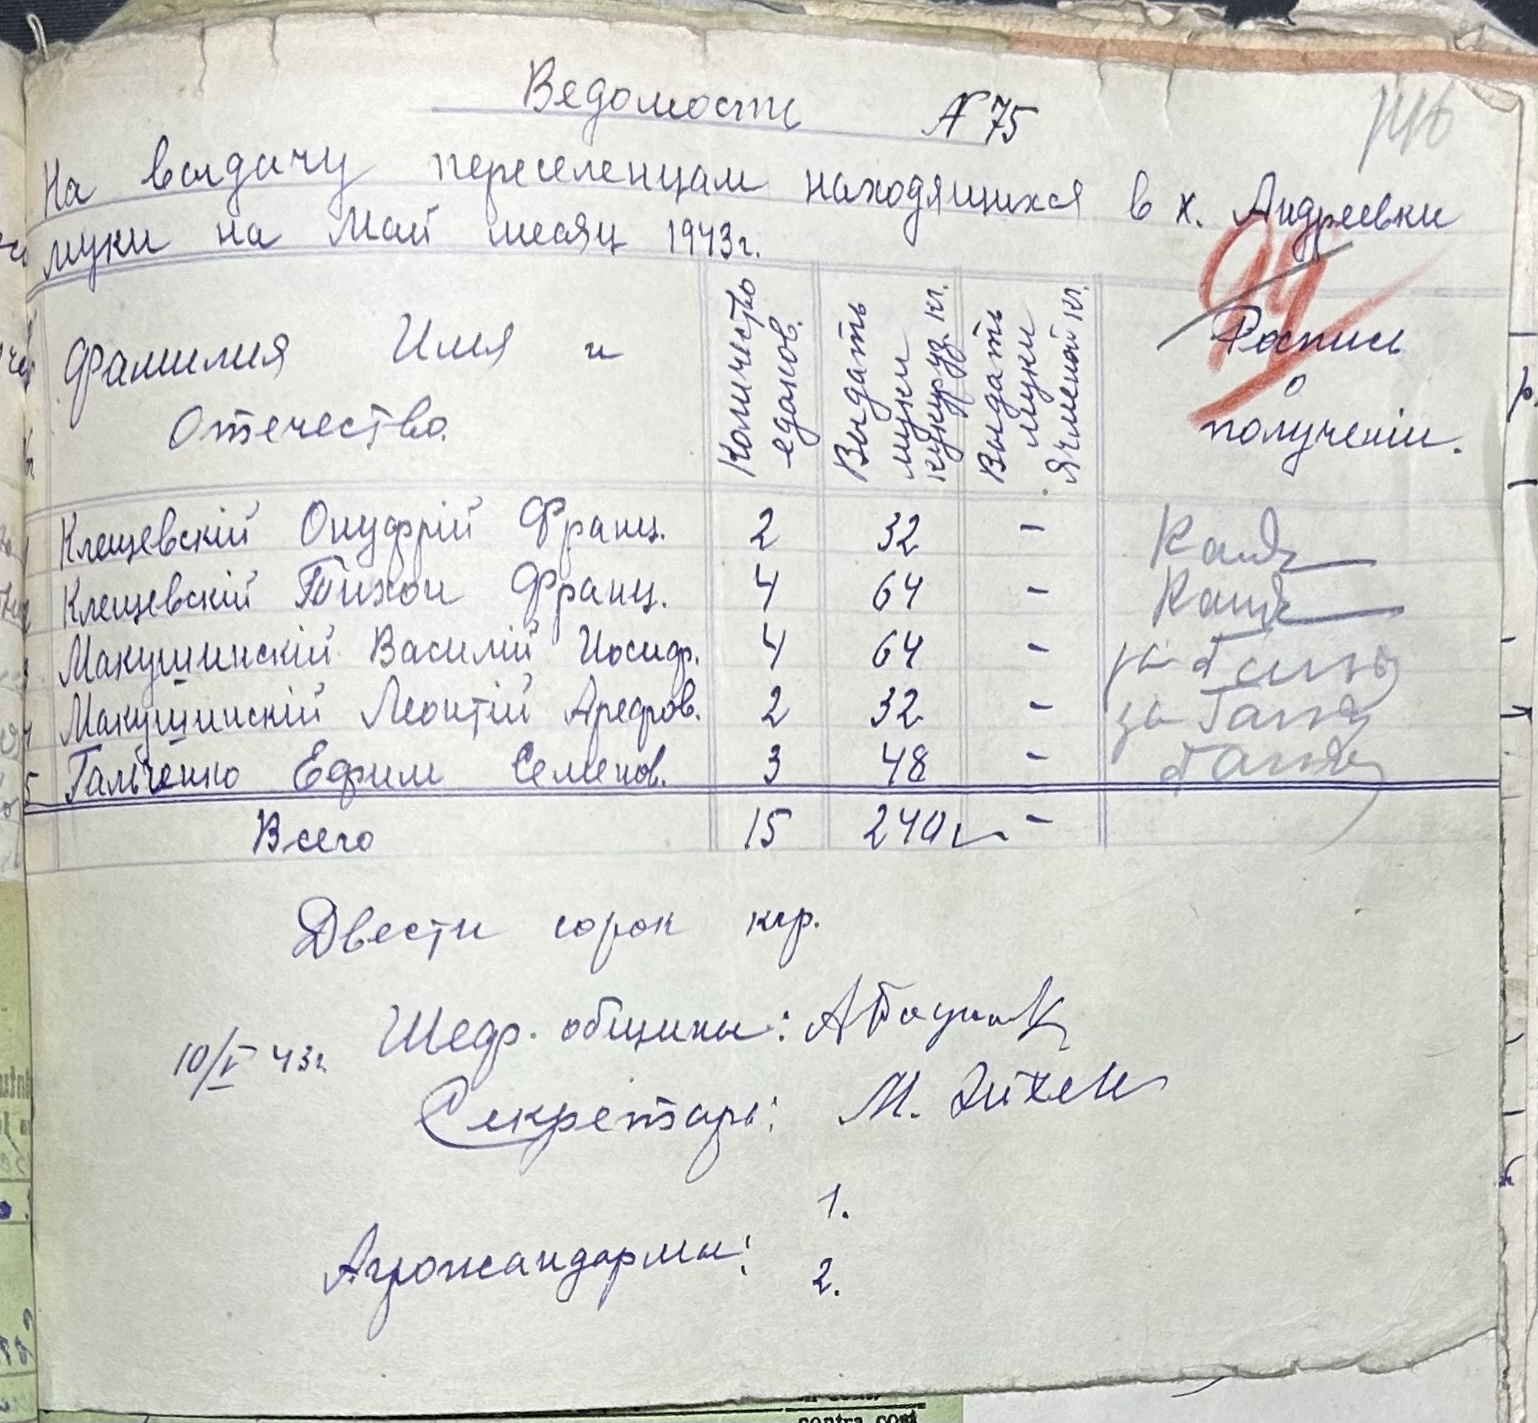 Ведомость № 75
На выдачу переселенцам находящихся в х. Андреевки
муки на Май месяц 1943г.
Фамилия Имя и Отечество.
Количество едоков.
Выдать муки кукуруз. кг.
Выдать муки Ячменой кг.
Роспись о получении.
99
1 Клещевскій Онуфрій Франц. 2 32 -
2 Клещевскій Тихон Франц. 4 64 -
3 Макушинскій Василій Иосиф. 4 64 - за
4 Макушинскій Леонтій Арефов. 2 32 - за
5 Гальченко Ефим Семенов. 3 48 -
Всего 15 240 -
Двести сорок кгр.
10/V 43г. Шеф. общины:
Секретарь: М.
Агрожандармы: 1.
2.
contra cost